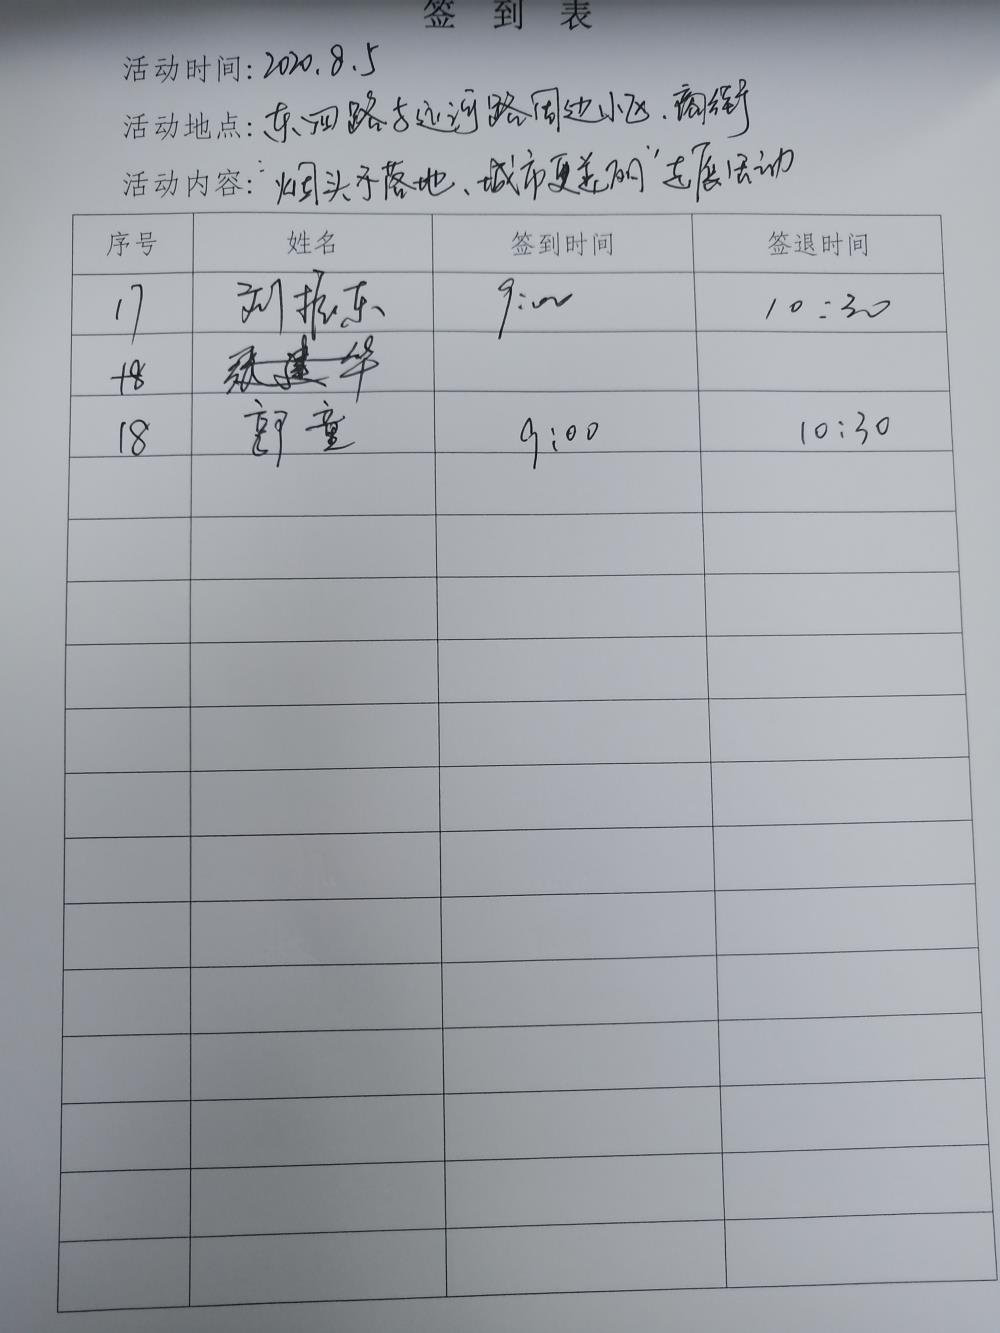 签到表
活动时间: 2020.8.5
活动地点: 东四路与运河路周边小区、商街
活动内容: "烟头不落地、城市更美丽"志愿活动
序号 姓名 签到时间 签退时间
17 刘振东 9:00 10:30
18 张建华
18 郭童 9:00 10:30